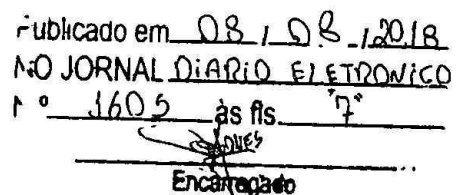 Publicado em 08 / 08 / 2018
NO JORNAL DiARiO ELETRONiCO
Nº 1605 às fls. "7"
Encarregado